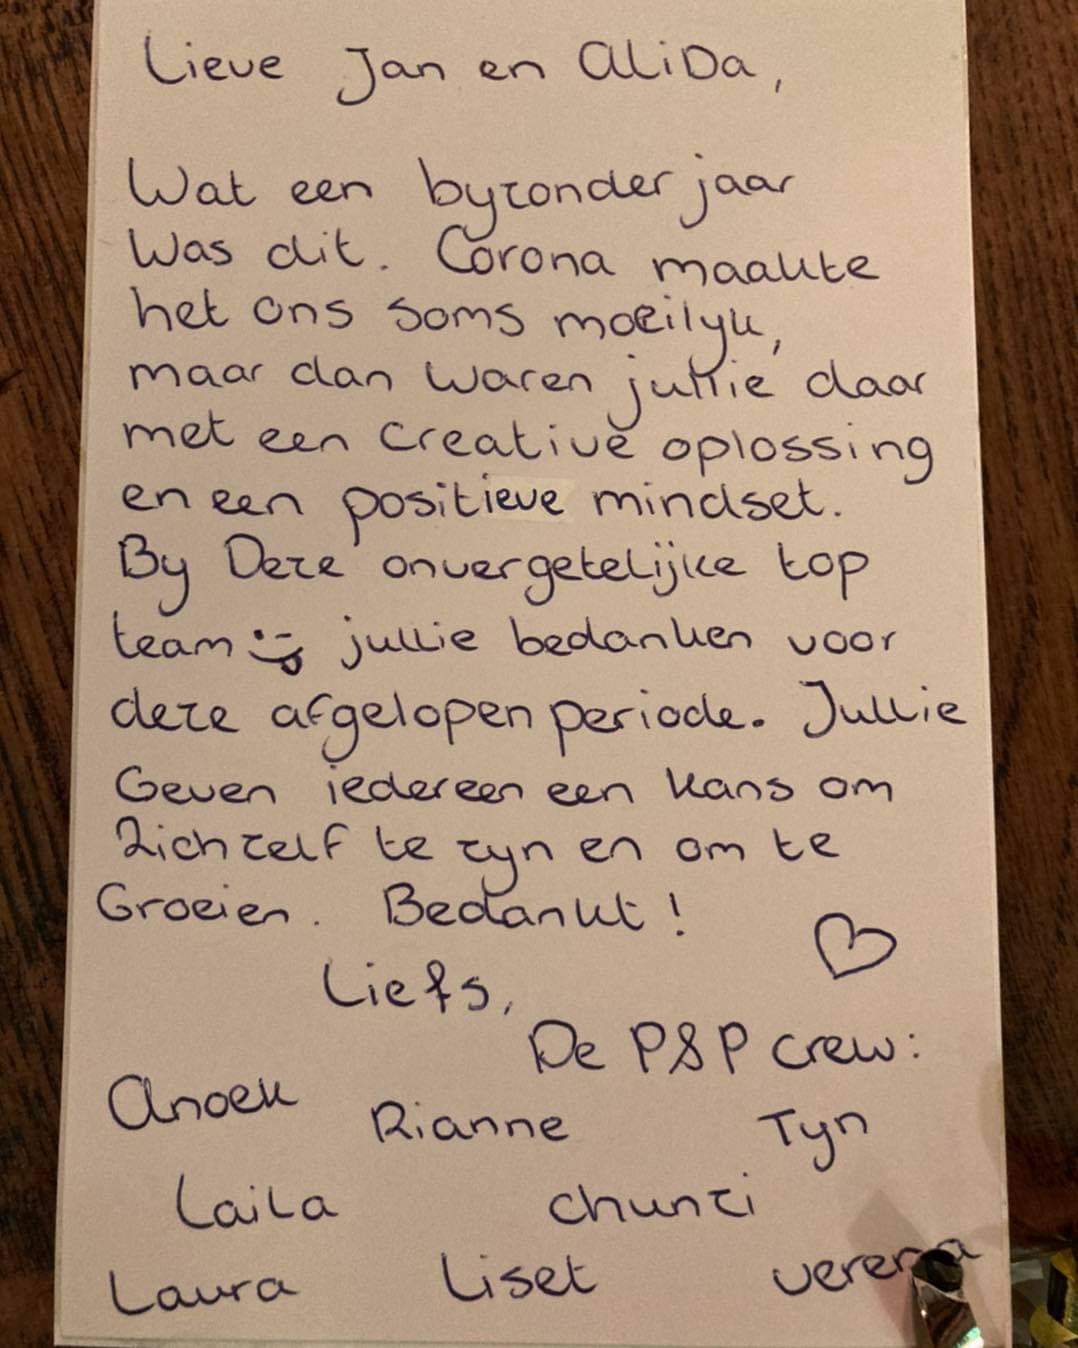 Lieve Jan en Alida,
Wat een byzonder jaar
Was dit. Corona maakte
het ons soms moeilyk,
maar dan waren jullie daar
met een creative oplossing
en een positieve mindset.
By Deze onvergetelijke top
team jullie bedanken voor
deze afgelopen periode. Jullie
Geven iedereen een kans om
Zichzelf te zyn en om te
Groeien. Bedankt!
Liefs,
De P&P crew:
Anoek
Rianne Tyn
Laila Chunzi
Laura Liset Verena